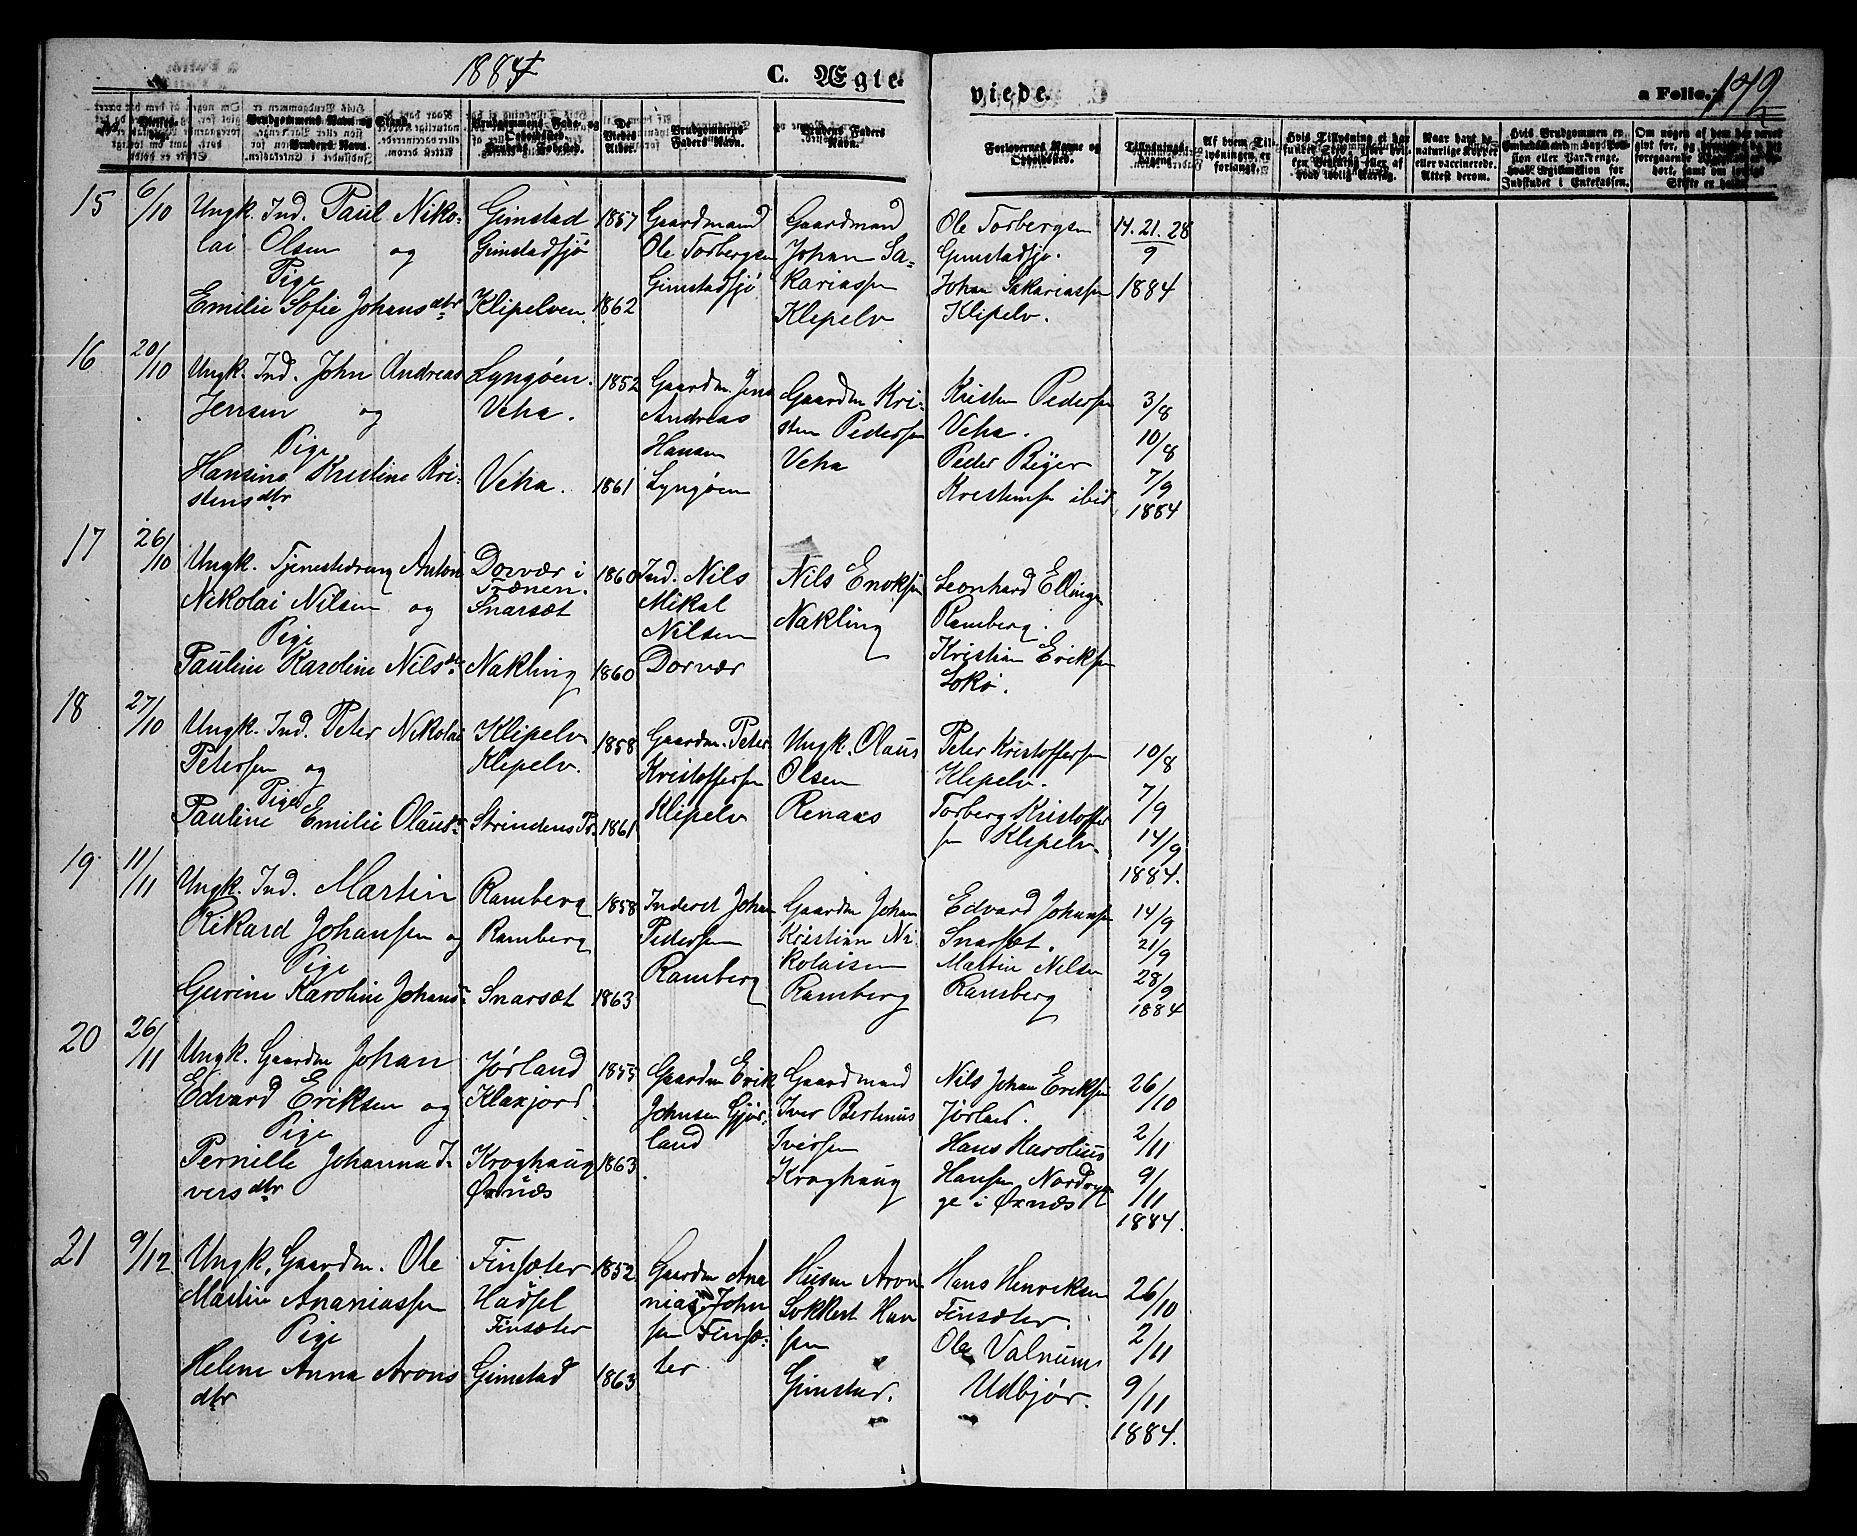 1884
C. Ægte-
viede.
a Folio. 142
No
Vielses-
dag.
Brudgommens Navn og Stand.
Brudens Navn.
Brudgommens Føde- og
Opholdssted.
Brudens Fødested.
De
Viedes
Alder.
Brudgommens
Faders Navn.
Brudens Faders
Navn.
Forlovernes Navne og
Opholdssted.
Tillysnings-
dagene.
Af hvem Til-
lysningen er
forlangt.
Naar havt de
naturlige Kopper
eller vaccinerede.
Attest derom.
15
6/10
Ungk. Ind. Paul Niko-
lai Olsen og
Pige
Emilie Sofie Johansdtr
Gimstad
Gimstadsjø
Klipelven
1857
1862
Gaardmand
Ole Torbergsen
Gimstadsjø
Gaardmand
Johan Sa-
kariassen
Klipelv
Ole Torbergsen
Gimstadsjø.
Johan Sakariassen
Klipelv.
14. 21. 28
9
1884
16
20/10
Ungk. Ind. John Andreas
Jensen og
Pige
Hansine Kristine Kri-
stensdtr
Lyngøen.
Veha.
Veha.
1852
1861
Gaardm. Jens
Andreas
Hansen
Lyngøen
Gaardm Kri-
sten Pedersen
Veha
Kristen Pedersen
Veha.
Peder Bejer
Kristensen ibid.
3/8
10/8
7/9
1884
17
26/10
Ungk. Tjenestedreng Anton
Nikolai Nilsen og
Pige
Pauline Karoline Nilsdtr
Dorvær i
Trænen.
Snarsæt
Nakling
1860
1860
Ind. Nils
Mikal
Nilsen
Dorvær
Nils Enoksen
Nakling
Leonhard Ellingsen
Ramberg.
Kristian Eriksen
Sokø.
18
27/10
Ungk. Ind. Peter Nikolai
Petersen og
Pige
Pauline Emilie Olaus-
Klipelv
Klipelv.
Strindens Pr.
1858
1861
Gaardm. Peter
Kristoffersen
Klipelv
Ungk. Olaus
Olsen
Renaas
Peter Kristoffersen
Klipelv.
Torberg Kristoffer
sen Klipelv.
10/8
7/9
14/9
1884.
19
11/11
Ungk. Ind. Martin
Rikard Johansen og
Pige
Gurine Karoline Johans-
Ramberg
Ramberg
Snarsæt
1858
1863
Inderst Johan
Pedersen
Ramberg
Gaardm Johan
Kristian Ni
kolaisen
Ramberg
Edvard Johansen
Snarsæt.
Martin Nilsen
Ramberg
14/9
21/9
28/9
1884
20
26/11
Ungk. Gaardm Johan
Edvard Eriksen og
Pige
Pernille Johanna I-
versdtr
Jørland
Klaxjord
Kroghaug
Øxnæs
1855
1863
Gaardm Erik
Johnsen Gjør-
land
Gaardmand
Iver Bertinus
Iversen
Kroghaug
Nils Johan Eriksen
Jørland.
Hans Karolius
Hansen Nordryg-
ge i Øxnæs
26/10
2/11
9/11
1884.
21
9/12
Ungk. Gaardm. Ole
Martin Ananiassen
Pige
Helene Anna Arons
dtr
Finsæter
Hadsel
Finsæter
Gimstad
1852
1863
Gaardm Ana
nias John
sen Finsæ-
ter
Husm Aron
Sokkert Han
sen
Gimstad.
Hans Henriksen
Finsæter.
Ole Valnum
Udbjør.
26/10
2/11
9/11
1884.